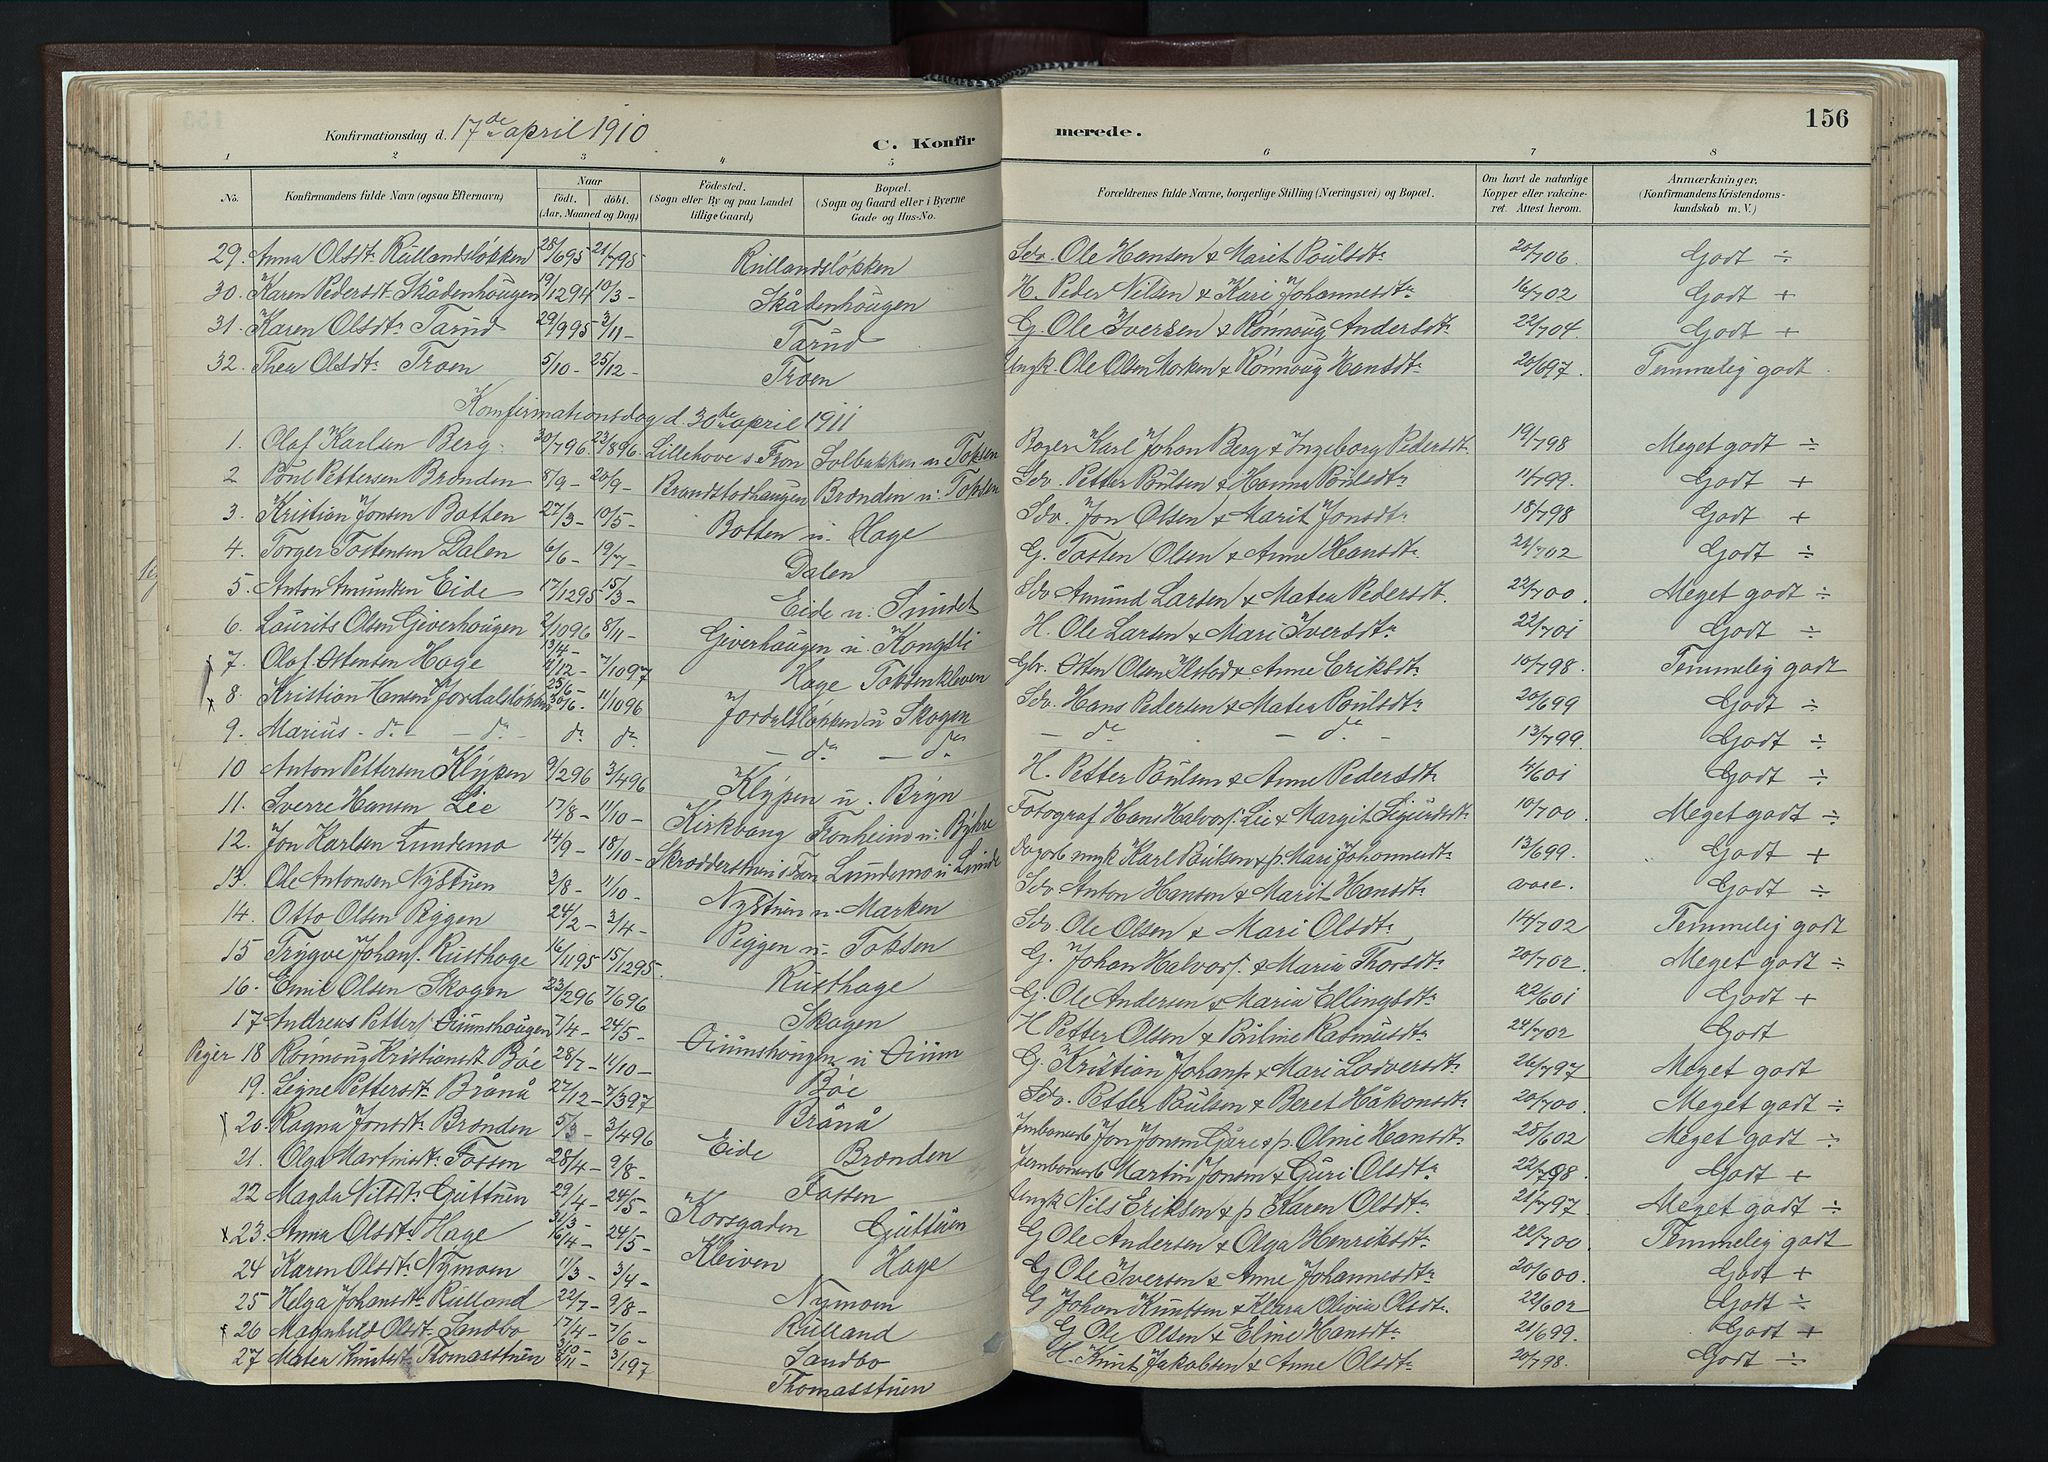 Konfirmationsdag d. 17de april 1910
C. Konfirmerede.
156
1 2 3 4 5 6 7 8
No. Konfirmandens fulde Navn (ogsaa Efternavn) Naar født. døbt. (Aar, Maaned og Dag) Fødested. (Sogn eller By og paa Landet tillige Gaard) Bopæl. (Sogn og Gaard eller i Byerne Gade og Hus-No. Forældrenes fulde Navne, borgerlige Stilling (Næringsvei) og Bopæl. Om havt de naturlige Kopper eller vakcineret. Attest herom. Anmærkninger. (Konfirmandens Kristendomskundskab m. V.)
29. Anna Olsdtr Rullandsløkken 28/695 21/795 Rullandsløkken Sdv. Ole Hansen & Marit Poulsdtr 20/706 Godt ÷
30. Karen Pedersdtr Skådenhougen 19/1294 10/3- Skådenhougen H. Peder Nilsen & Kari Johannesdtr 16/702 Godt +
31. Karen Olsdtr Tarud 29/995 3/11- Tarud G. Ole Iversen & Rønnoug Andersdtr 22/704 Godt +
32. Thea Olsdtr Troen 5/10- 25/12- Troen Ungk. Ole Olsen Morken & Rønnoug Hansdtr 20/697 Temmelig godt
Konfirmationsdag d. 30de april 1911
1. Olaf Karlsen Berg 30/796 23/896 Lillehove s. Fron Solbakken u. Toksen Karl Johan Berg & Ingeborg Pedersdt 19/798 Meget godt ÷
2 Poul Pettersen Brænden 8/9- 20/9- Brandstadhaugen Brænden u. Toksen Sdv. Petter Poulsen & Hanna Poulsdtr 11/799. Godt +
3. Kristian Jonsen Botten 27/3- 10/5- Botten u. Hage Sdv. Jon Olsen & Marit Jonsdtr 18/798 Godt +
4. Torger Tostensen Dalen 6/6- 19/7- Dalen G. Tosten Olsen & Anne Hansdtr 21/702 Godt ÷
5. Anton Amundsen Eide 17/1295 15/3- Eide u. Sundet Sdv Amund Larsen & Matea Pedersdt. 22/700 Meget godt ÷
6. Laurits Olsen Giverhougen 2/1096 8/11- Giverhaugen u. Kongsli H. Ole Larsen & Mari Iversdtr 22/701 Godt ÷
7. Olaf Ostensen Hage 13/4- 11/12- 7/1097 Hage Toksenkleven Gbr. Osten Olsen Ulstad & Anne Eriksdtr 10/798. Temmelig godt
x 8. Kristian Hansen Jordalsløkken 25/6- 30/6. 11/1096 Jordalsløkken u Skogen Sdv. Hans Pedersen & Matea Poulsdtr 20/699 Godt ÷
9. Marius - do - - do - do do - do - do - do - do - 13/799. Godt ÷
10 Anton Pettersen Klypen 9/296 3/496 Klypen u. Bryn H. Petter Poulsen & Anne Pedersdtr 4/601 Godt ÷
11. Sverre Hansen Lie 17/8- 11/10- Kirkvang Fronheim u. Byhre Fotograf Hans Halvors. Lie & Margit Sigurdsdtr 10/700 Meget godt ÷
12. Jon Karlsen Lundemo 14/9- 18/10- Lundemo u Lunde Karl Poulsen & p. Mari Johannesdtr 13/699. Godt +
13. Ole Antonsen Nystuen 3/8- 11/10- Nystuen u. Marken Sdv Anton Hansen & Marit Hansdtr vacc. Godt ÷
14. Otto Olsen Peggen 24/2- 3/4- Peggen u. Toksen Sdv. Ole Olsen & Mari Olsdtr 14/702 Temmelig godt
15 Trygve Johans. Rusthage 16/1195 15/1295. Rusthage G. Johan Halvors. & Maria Thorsdtr 20/702. Meget godt ÷
16. Emil Olsen Skogen 23/296 7/696 Skogen G. Ole Andersen & Maria Ellingsdtr 22/601 Godt +
17 Andreas Petters. Oiumshougen 7/4- 24/5- Oiumshougen u Oium H Petter Olsen & Pauline Rasmusdtr 24/702 Godt
Piger 18 Rønnoug Kristiansdt Bøe 28/7- 11/10- Bøe G. Kristian Johans. & Mari Lodversdtr 26/797 Meget godt
19. Signe Pettersdtr Brånå 27/12- 7/397 Brånå Sdv. Petter Poulsen & Beret Håkonsdtr 20/700. Meget godt ÷
x 20. Ragna Jonsdtr Brænden 5/3- 3/496 Eide Brænden Jernbanearb Jon Jonsen & p. Oline Hansdtr 28/602 Meget godt ÷
21. Olga Martinsdtr Fossen 28/4- 9/8- Fossen Jernbanearb Martin Jonsen & Guri Olsdtr 22/798. Godt +
22 Magda Nilsdtr Guttuen 29/4- 24/5- Korsgaden Guttuen Ungk Nils Eriksen & p Karen Olsdtr 21/797 Meget godt ÷
x 23. Anna Olsdtr Hage 31/3- 16/4- 24/5- Kleiven Hage G Ole Andersen & Olga Henriksdtr 22/700 Temmelig godt
24 Karen Olsdtr Nymoen 11/3- 3/4- Nymoen G Ole Iversen & Anne Johannesdtr 20/600. Godt +
25 Helga Johansdtr Rulland 22/7- 9/8- Rulland G Johan Knutsen & Klara Olivia Olsdtr 22/602 Godt ÷
x 26 Magnhild Olsdtr Sandbo 17/4- 7/6- Sandbo G Ole Olsen & Eline Hansdtr 21/699. Godt +
27 Matea Knutsdt Thomasstuen 3/10- 8/11- 3/197 Thomasstuen H. Knut Jakobsen & Anne Olsdtr 20/798. Godt ÷